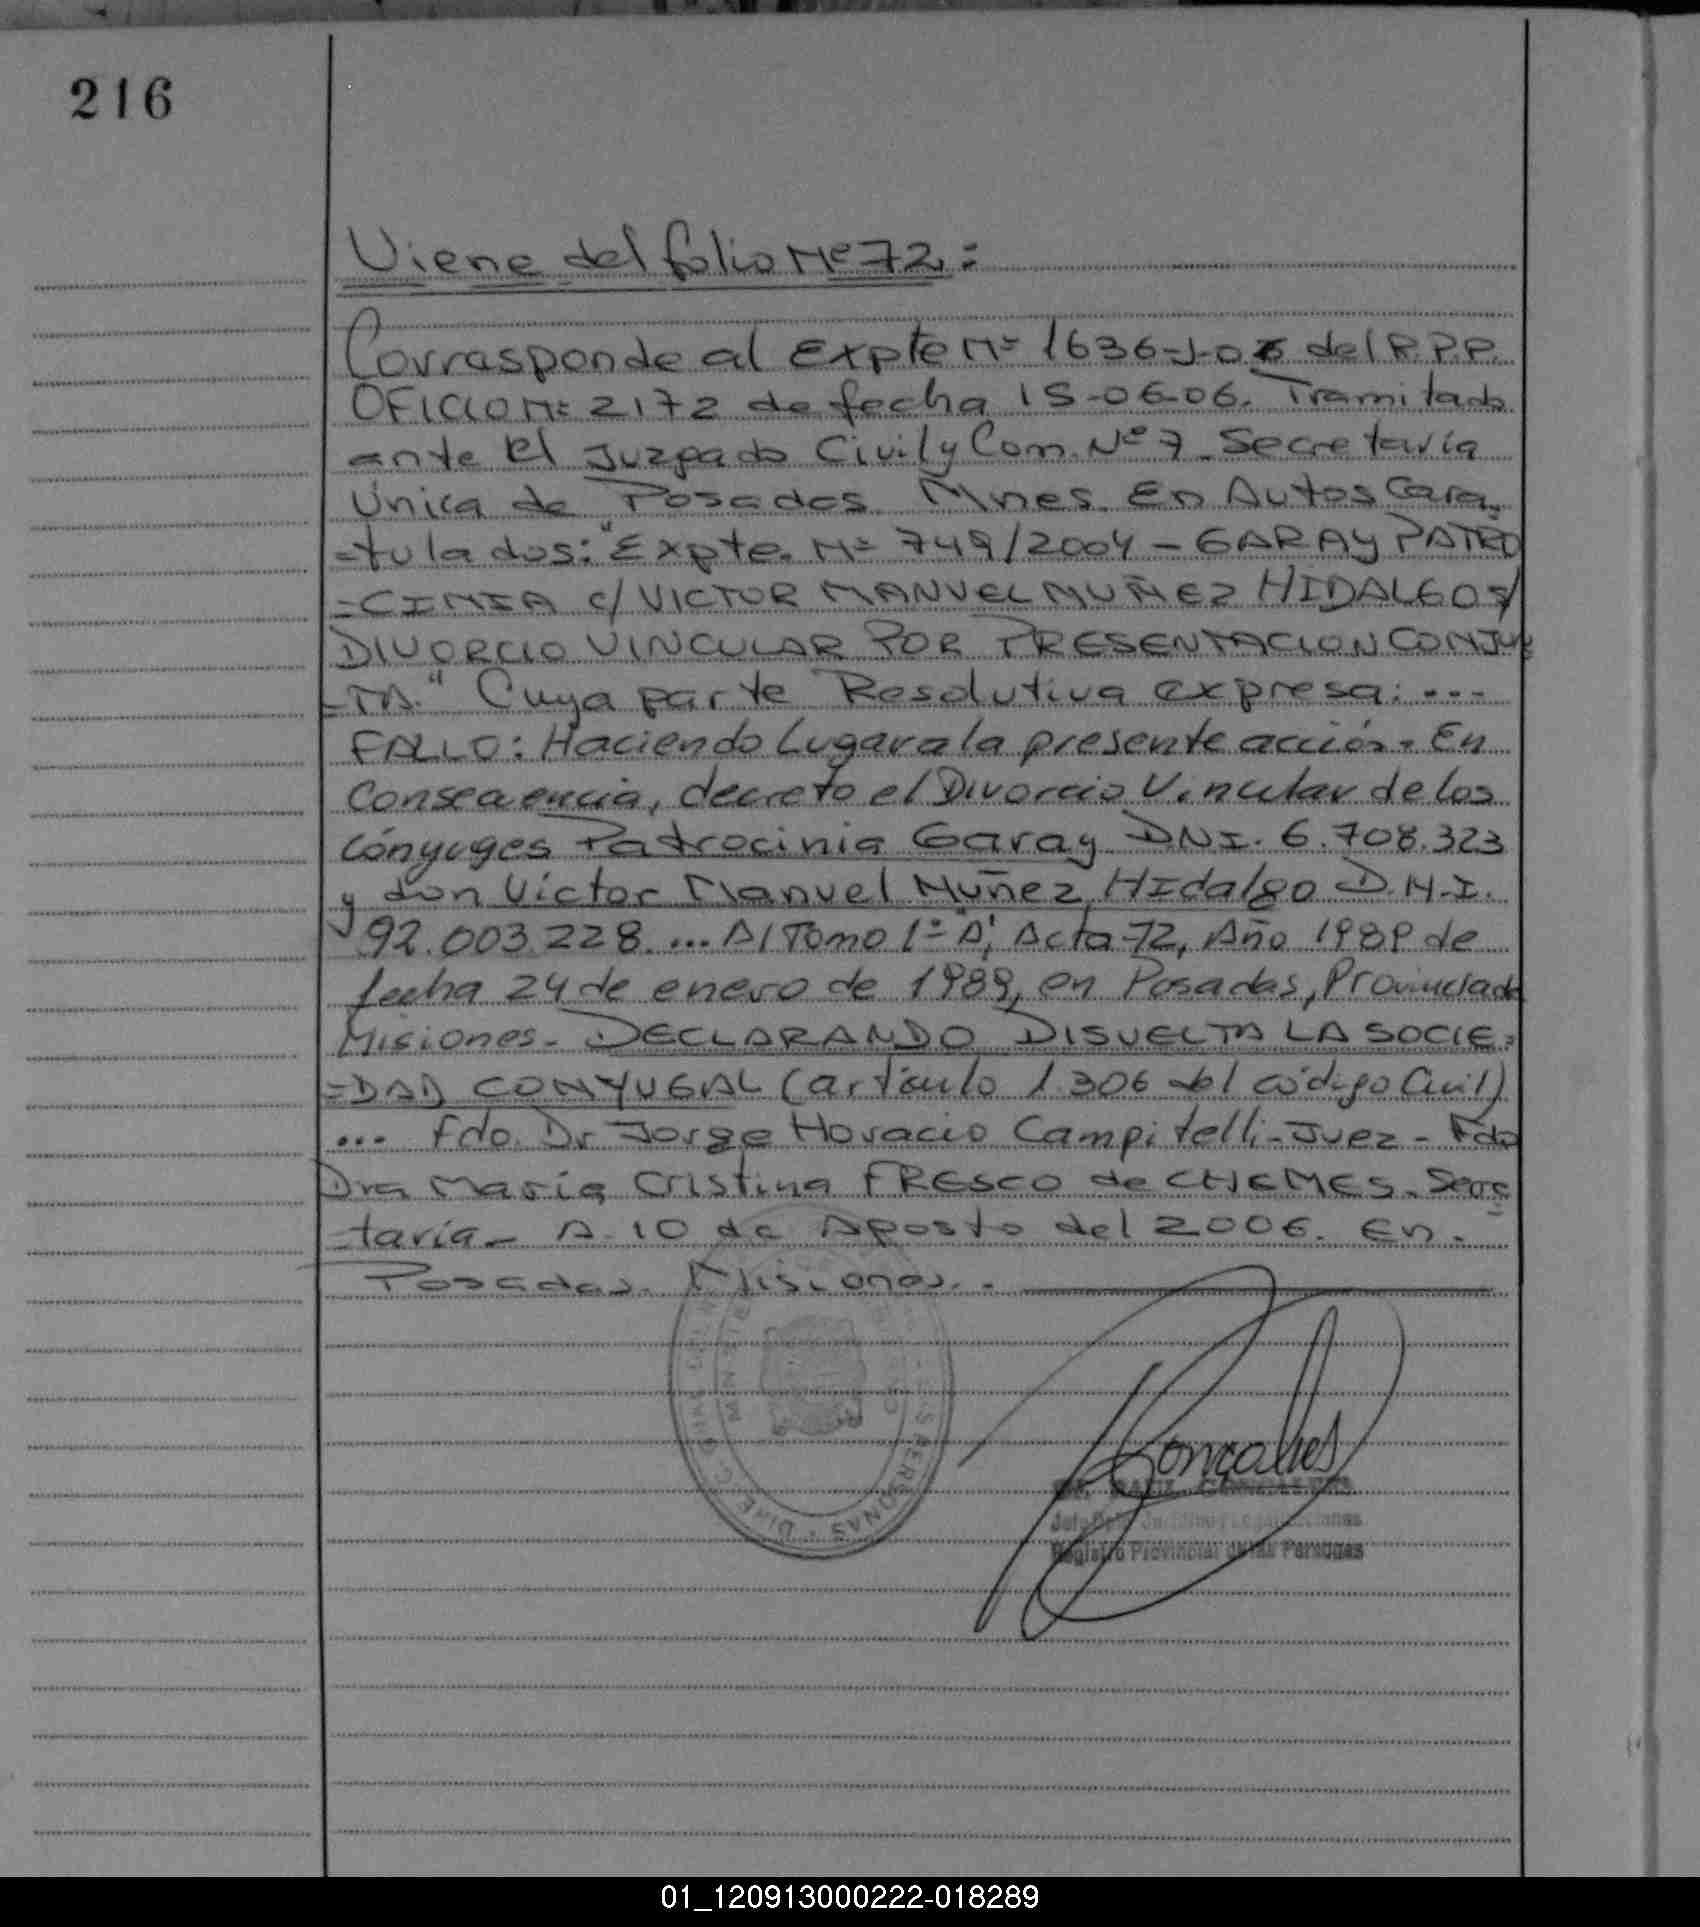 216
Viene del folio Nº 72:
Corresponde al Expte Nº 1636-J-06 del R.P.P.
OFICIO Nº 2172 de fecha 15-06-06. Tramitado
ante el Juzgado Civil y Com. Nº 7. Secretaría
Única de Posadas. Mnes. En Autos Cara
=tulados: "Expte. Nº 749/2004 - GARAY PATRO
=CINIA c/ VICTOR MANUEL MUÑEZ HIDALGO s/
DIVORCIO VINCULAR POR PRESENTACION CONJUN
-TA." Cuya parte Resolutiva expresa: ...
FALLO: Haciendo Lugar a la presente acción. En
Consecuencia, decreto el Divorcio Vincular de los
Cónyuges Patrocinia Garay DNI. 6.708.323
y don Victor Manuel Muñez Hidalgo D.N.I.
92.003.228. ... Al Tomo 1º "A", Acta 72, Año 1989 de
fecha 24 de enero de 1989, en Posadas, Provincia de
Misiones. DECLARANDO DISUELTA LA SOCIE=
=DAD CONYUGAL (artículo 1.306 del código Civil)
... Fdo. Dr Jorge Horacio Campitelli - Juez - Fdo
Dra María Cristina FRESCO de CHEMES. Secre
-taría - A 10 de Agosto del 2006. En.
Posadas. Misiones. -
Gonçalves
Registro Provincial de las Personas
01_120913000222-018289